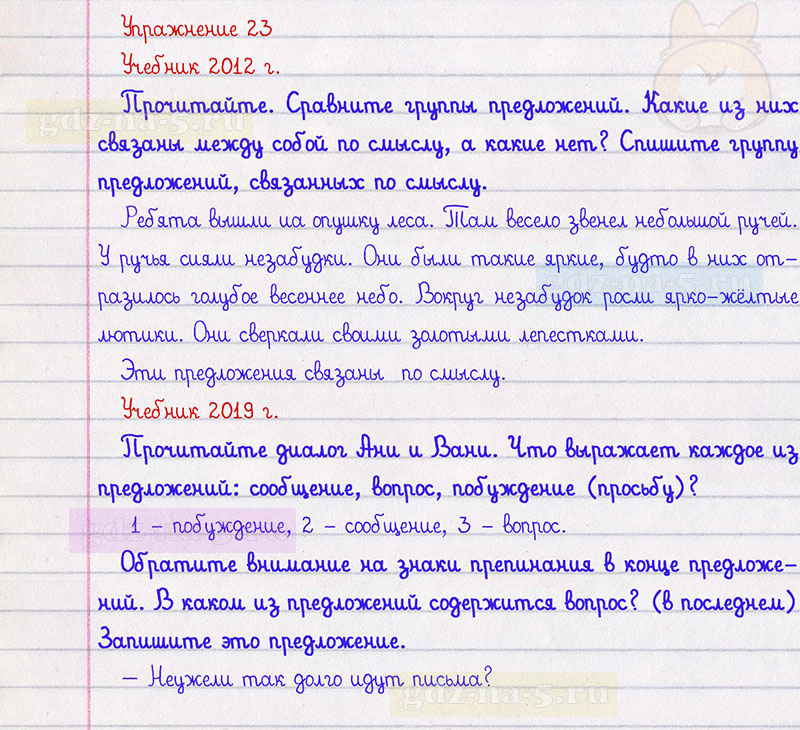 Упражнение 23
Учебник 2012 г.
Прочитайте. Сравните группы предложений. Какие из них
gdz-na-5.ru
связаны между собой по смыслу, а какие нет? Спишите группу
предложений, связанных по смыслу.
Ребята вышли иа опушку леса. Там весело звенел небольшой ручей.
У ручья сияли незабудки. Они были такие яркие, будто в них от-
gdz-na-5.ru
разилось голубое весеннее небо. Вокруг незабудок росли ярко-жёлтые
лютики. Они сверкали своими золотыми лепестками.
Эти предложения связаны по смыслу.
Учебник 2019 г.
Прочитайте диалог Ани и Вани. Что выражает каждое из
предложений: сообщение, вопрос, побуждение (просьбу)?
1 – побуждение, 2 – сообщение, 3 – вопрос.
gdz-na-5.ru
Обратите внимание на знаки препинания в конце предложе-
ний. В каком из предложений содержится вопрос? (в последнем)
Запишите это предложение.
– Неужели так долго идут письма?
gdz-na-5.ru